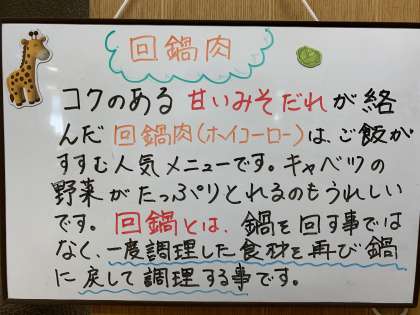 回鍋肉
コクのある 甘いみそだれが絡
んだ 回鍋肉(ホイコーロー)は、ご飯が
すすむ人気メニューです。キャベツの
野菜がたっぷりとれるのもうれしい
です。回鍋とは、鍋を回す事では
なく、一度調理した食材を再び鍋
に戻して調理する事です。